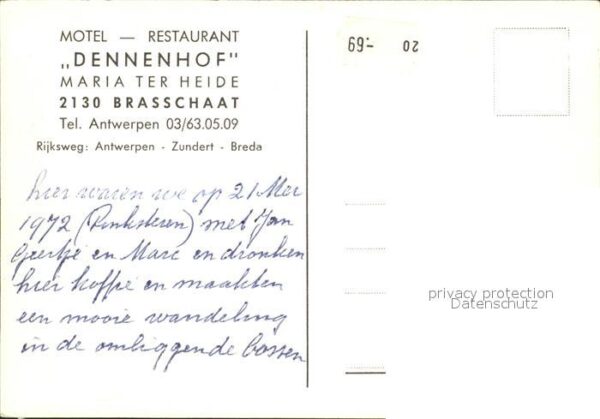 MOTEL — RESTAURANT
„DENNENHOF"
MARIA TER HEIDE
2130 BRASSCHAAT
Tel. Antwerpen 03/63.05.09
Rijksweg: Antwerpen - Zundert - Breda
hier waren we op 21 Mei
1972 (Pinksteren) met Jan
Geertje en Marc en dronken
hier koffie en maakten
een mooie wandeling
in de omliggende bossen
20 -:69
privacy protection
Datenschutz